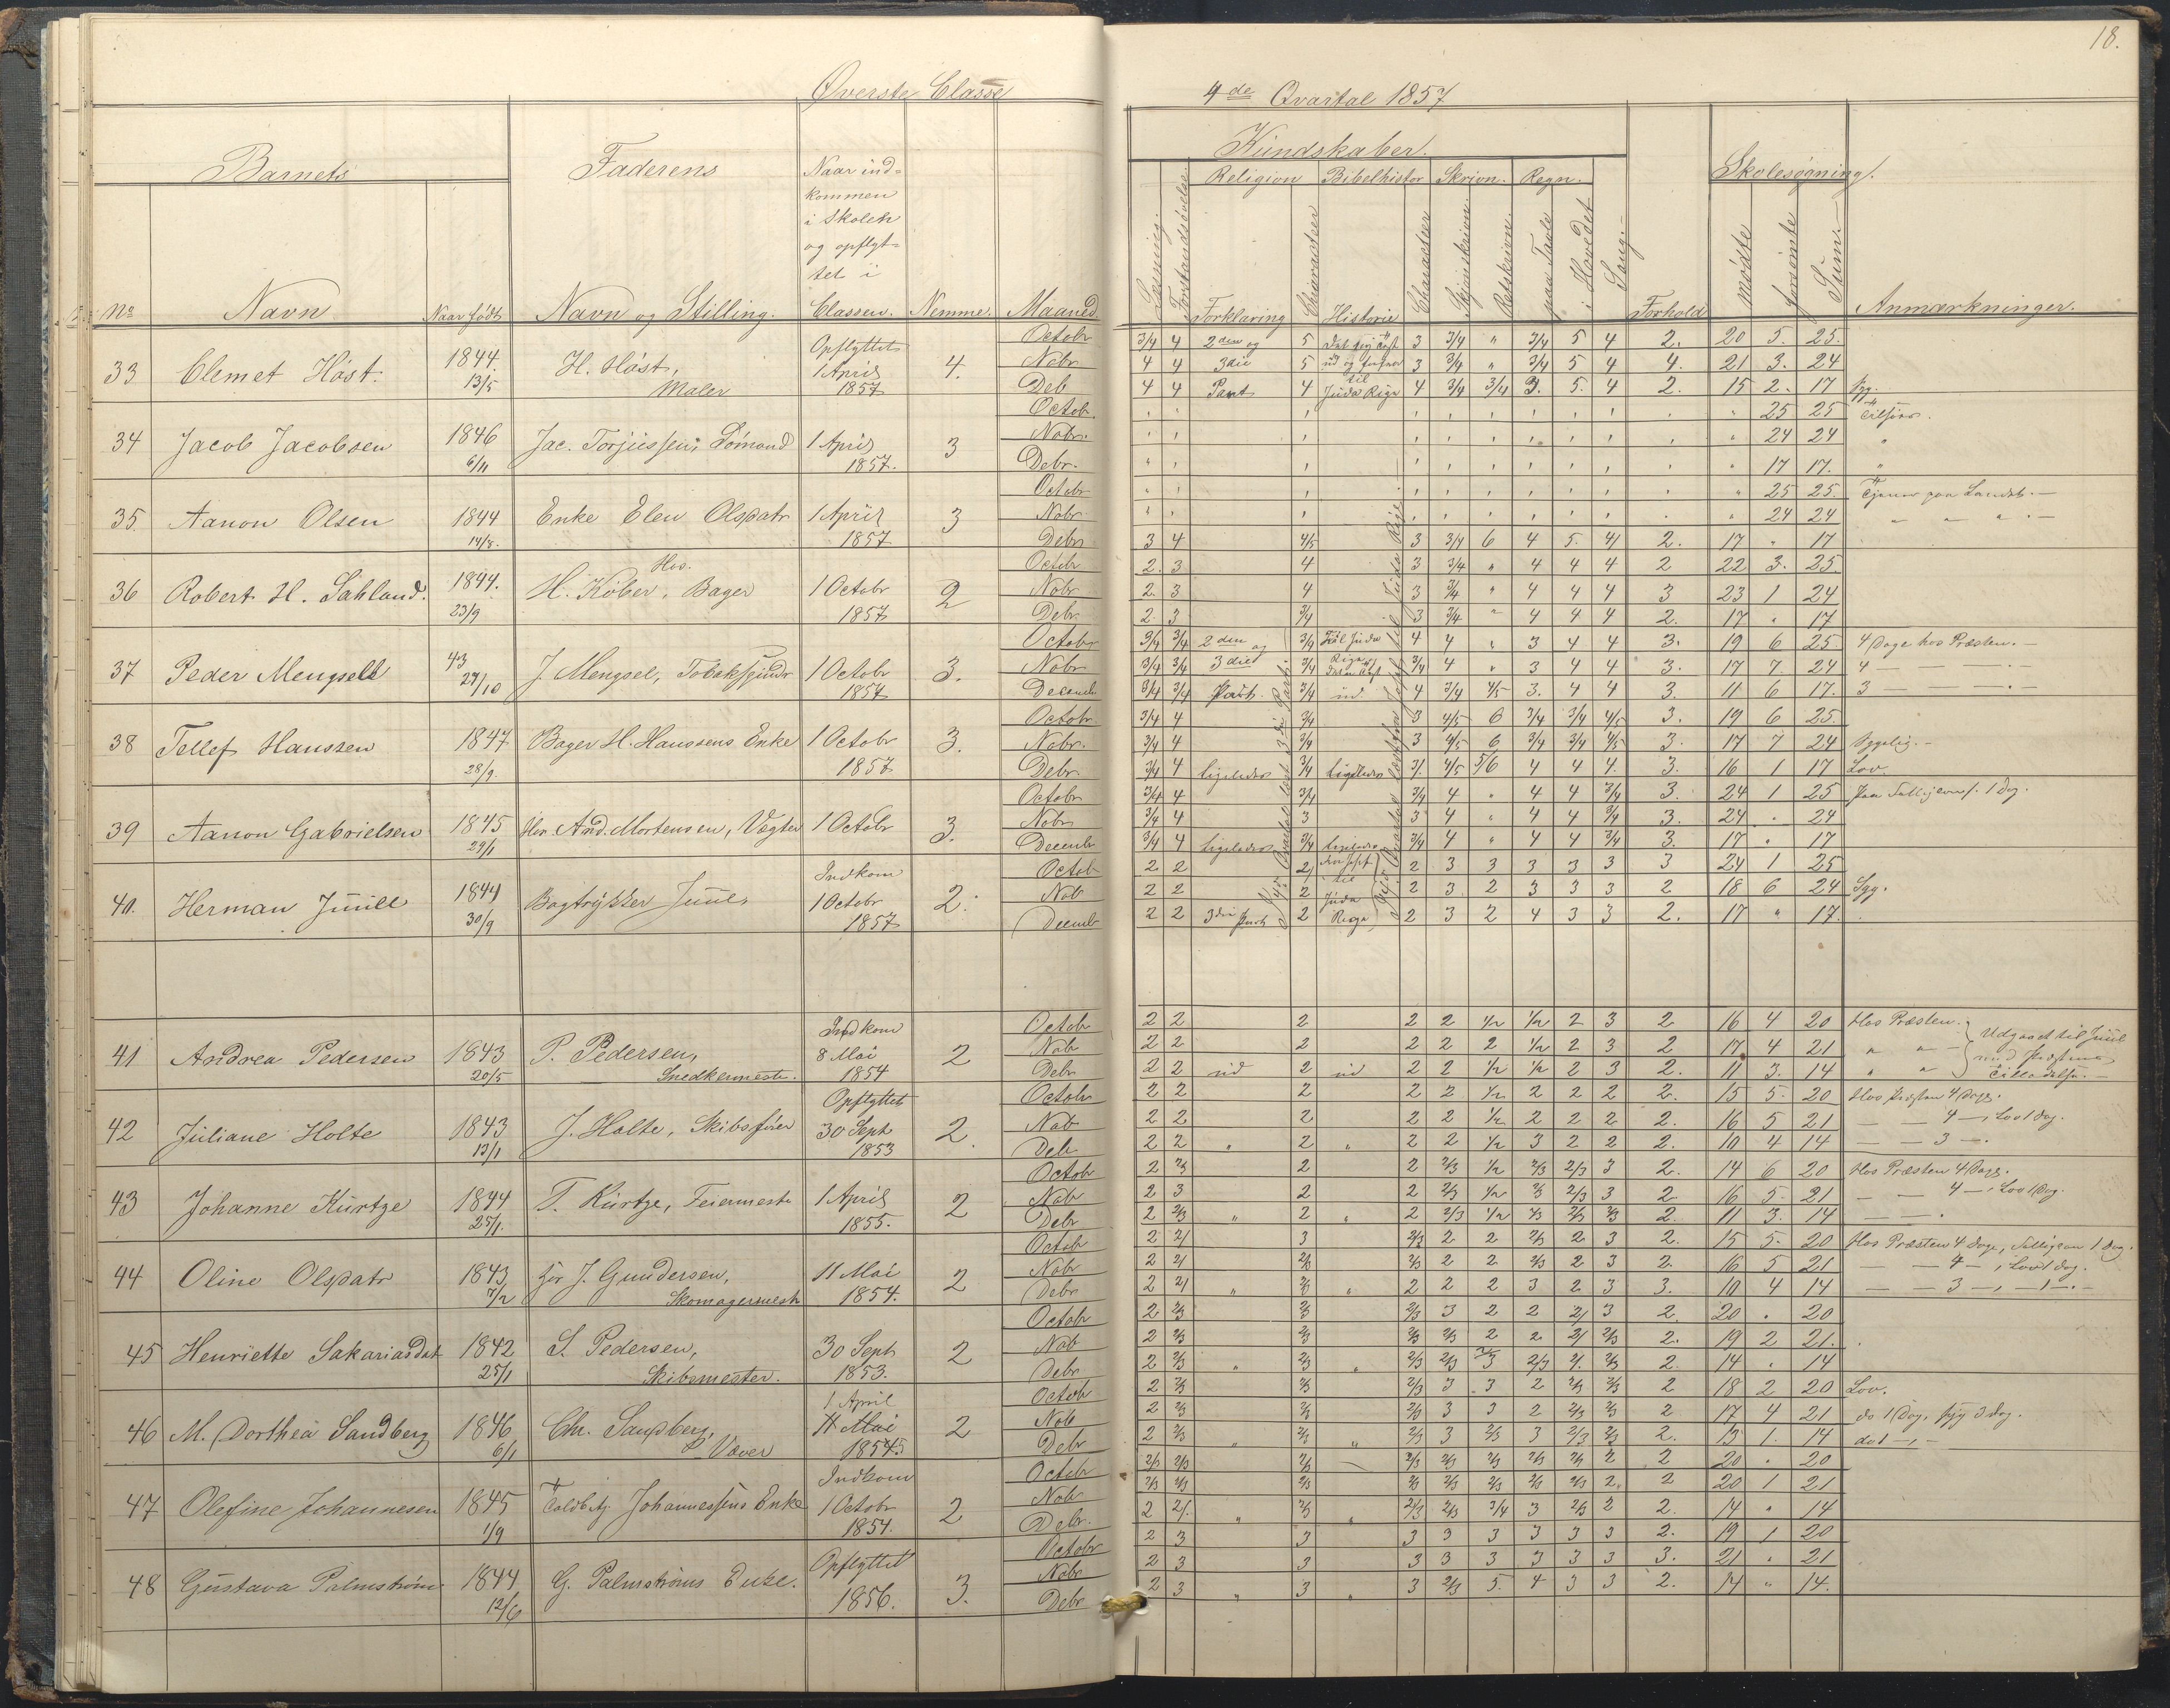 18.
Øverste Classe
4de Qvartal 1857
Barnets
Faderens
Naar ind-
kommen
i Skolen
og opflyt-
tet i
Classen.
No
Navn
Naar født
Navn og Stilling.
Nemme.
Maaned.
Kundskaber.
Religion Bibelhistor Skrivn. Regn.
Læsning.
Forstandsøvelse.
Forklaring
Characteer
Historie
Characteer
Skjønskrivn.
Retskrivn.
paa Tavle
i Hovedet
Sang.
Forhold
Skolesøgning.
mødte
forsømte
Sum.
Anmærkninger.
33 Clemet Høst. 1844. 13/5 H. Høst, Maler Opflyttet 1 April 1857 4.
Octobr 3/4 4 2den og 5 3 3/4 " 3/4 5 4 2. 20 5. 25.
Nobr 4 4 3die 5 3 3/4 " 3/4 5 4 4. 21 3. 24
Deb 4 4 Part 4 Juda Rige 4 3/4 3/4 3. 5. 4 2. 15 2. 17 Syg.
34 Jacob Jacobsen 1846 6/11 Jac. Torjussen, Sömand 1 April 1857. 3
Octob. 25 25 Tilsjøs.
Nobr. 24 24 "
Debr. 17 17. "
35. Aanon Olsen 1844 14/8. Enke Elen Olsdatr 1 April 1857 3
Octobr 25 25. Tjener paa Landet.
Nobr. 24 24
Debr 3 4 4/5 3 3/4 6 4 5. 4 2. 17 " 17
36 Robert H. Sahland. 1844. 23/9 Hos. H. Köber, Bager 1 Octobr 1857 2
Octobr 2. 3 4 3 3/4 " 4 4 4 2 22 3. 25.
Nobr 2. 3 4 3 3/4 " 4 4 4 3 23 1 24
Debr. 2. 3 3/4 3 3/4 " 4 4 4 2. 17 " 17
37 Peder Mengsell 43 29/10 J. Mengsel, Tobakspindr 1 Octobr 1857 3.
Octobr 3/4 3/4 2den og 3/4 Til Juda 4 4 " 3 4 4 3. 19 6 25. 4 Dage hos Præsten.
Nobr 3/4 3/4 3die 3/4 Rige 3/4 4 " 3 4 4 3. 17 7 24 4
Decemb 3/4 3/4 Part. 3/4 ud. 4 3/4 4/5 3. 4 4 3. 11 6 17. 3
38 Tellef Hanssen 1847 28/9. Bager H. Hanssens Enke 1 Octobr 1857 3.
Octobr 3/4 4 3/4 3 4/5 6 3/4 3/4 4/5 3. 19 6 25
Nobr. 3/4 4 3/4 3 4/5 6 3/4 3/4 4/5 3. 17 7 24 Sygelig.
Debr. 3/4 4 Ligeledes 3/4 Ligeledes 4/5 5/6 4 4 4. 3. 16 1 17 Lov
39 Aanon Gabrielsen 1845 29/1 Hos. And. Mortensen, Vægter 1 Octobr 3.
Octobr 3/4 4 3/4 3/4 4 " 4 4 3/4 3. 24 1 25 1 Dag.
Nobr 3/4 4 3 3 4 " 4 4 3/4 3. 24 " 24
Decembr 3/4 4 Ligeledes 3/4 Ligeledes 3/4 4 " 4 4 3/4 3. 17 " 17
40. Herman Juuell 1844 30/9 Bogtrykker Juuel, Indkom 1 Octobr 1857 2.
Octob 2 2 2 2 3 3 3 3 3 3 24 1 25
Nob 2 2 2 til Juda 2 3 2 3 3 3 2 18 6 24 Syg.
Decemb 2 2 3die Part 2 Rige 2 3 2 4 3 3 2. 17 " 17.
41 Andrea Pedersen 1843 20/5 P. Pedersen, Snedkermestr. Indkom 8 Mai 1854 2
Octob 2 2 2 2 2 1/2 1/2 2 3 2 16 4 20 Hos Præsten. Udgaaet til Juul
Nob 2 2 2 2 2 2 1/2 2 3 2 17 4 21 " " med Præstens
Debr 2 2 ud 2 ud 2 2 1/2 1/2 2 3 2. 11 3. 14 " " Tilladelse.
42 Juliane Holte 1843 13/1 J. Holte, Skibsfører Opflyttet 30 Sept 1853 2.
Octobr 2 2 2 2 2 1/2 2 2 2 2. 15 5. 20 Hos Præsten 4 Dage.
Nob 2 2 2 2 2 1/2 2 2 2 2. 16 5 21 4 —, Lov 1 Dag.
Deb. 2 2 " 2 " 2 2 1/2 3 2 2 2. 10 4 14 — — 3 —.
43 Johanne Kürtze 1844 25/1. T. Kürtze, Feiermestr 1 April 1855. 2
Octobr 2 2/3 2 2 2/3 1/2 2/3 2/3 3 2. 14 6 20 Hos Præsten 4 Dage.
Nob 2 3 2 2 2/3 1/2 2/3 2/3 3 2. 16 5. 21 — — 4 —, Lov 1 Dag.
Debr 2 2/3 " 2 " 2 2/3 1/2 2/3 2/3 2. 11 3. 14
44 Oline Olsdatr 1843 7/2 J. Gundersen, Skomagermestr 11 Mai 1854. 2
Octob 2 3 2/3 2 2 2/3 2 3 2. 15 5. 20 Hos Præsten 4 Dage, 1 Dag.
Nobr 2 2/3 2/3 2 2 2/3 2 3 2. 16 5 21 — — 4 —, Lov 1 Dag.
Debr 2 " 2/3 " 2 2 2 3 2 3 3. 10 4 14 — — 3 —, — 1 —.
45 Henriette Sakariasdat 1842 25/1 S. Pedersen, Skibsmester. 30 Sept 1853. 2
Octobr 2 2/3 2/3 2/3 3 2 2 3 2. 20 " 20
Nob 2 2/3 2/3 2/3 2/3 2 2 2/3 2. 19 2 21.
Debr 2 2/3 " 2/3 " 2/3 2/3 2/3 2/3 2. 14 " 14
46 M. Dorthea Sandberg 1846 6/1 Chr. Sandberg, Væver 1 April 11 Mai 1855 2
Octob 2 2/3 2/3 2/3 3 3 2 2/3 2/3 2 18 2 20 Lov.
Nob 2 2/3 2/3 2/3 3 3 2 2/3 2/3 2 17 4 21 do 1 Dag, syg 3 Dag.
Debr 2 2/3 " 2/3 " 2/3 3 2/3 3 2/3 2/3 2. 13 1. 14
47 Olefine Johannesen 1845 1/9 Toldbtj. Johannessens Enke Indkom 1 Octobr 1854. 2
Octobr 2/3 2/3 2/3 2/3 2/3 2/3 2/3 2/3 2 2 20 " 20
Nob 2/3 2/3 2/3 2/3 2/3 2/3 2/3 2/3 2 2 20 1 21
Debr. 2 " 2/3 " 2/3 2/3 3/4 3 2/3 2 2. 14 " 14
48 Gustava Palmstrøm 1844 12/6 G. Palmstrøms Enke. Opflyttet 1856. 3.
Octobr 2 3 3 3 3 3 3 3 3 2. 19 1 20
Nobr 2 3 3 3 3 3 3 3 3 3. 21 " 21
Debr 2 3 " 3 " 3 2/3 5. 4 3 3 2. 14 " 14.